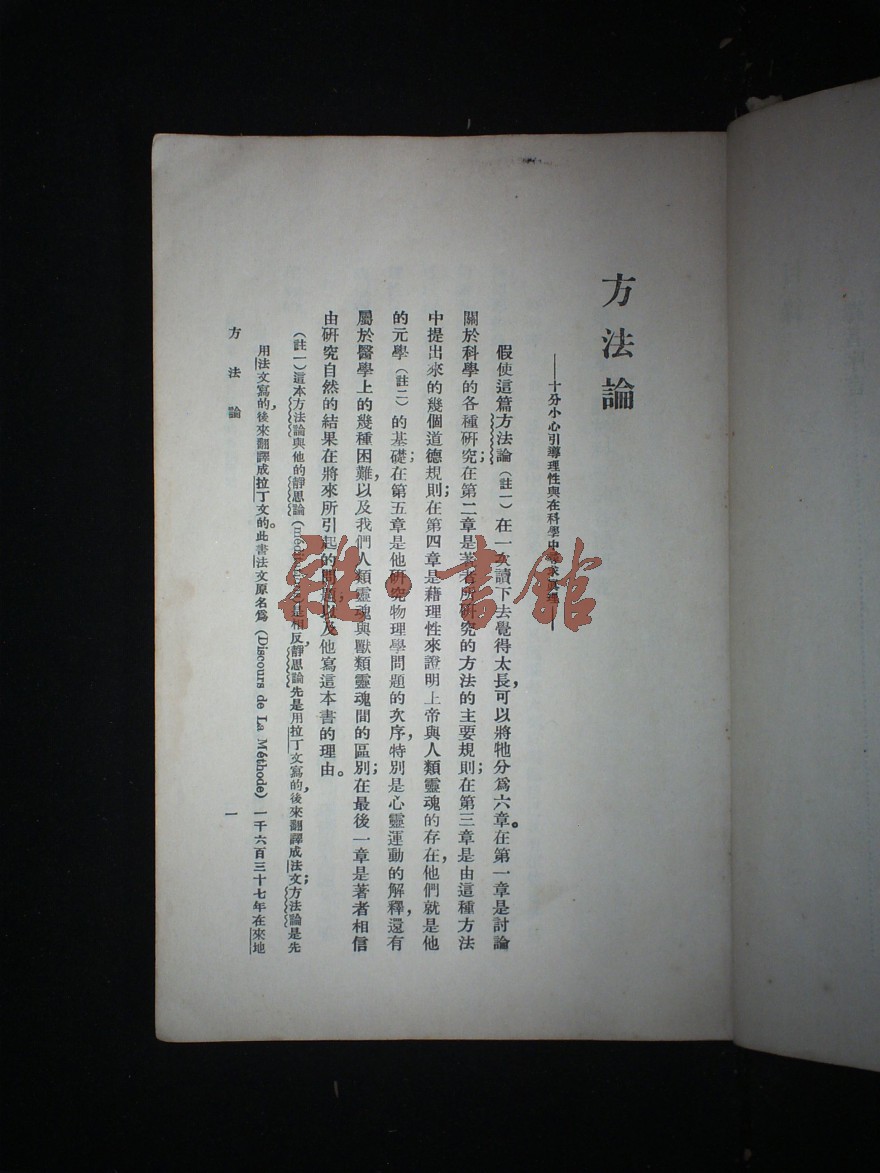 方法論
——十分小心引導理性與在科學中尋求真理——
假使這篇方法論(註一)在一次讀下去覺得太長，可以將牠分爲六章。在第一章是討論
關於科學的各種研究；在第二章是著者所研究的方法的主要規則；在第三章是由這種方法
中提出來的幾個道德規則；在第四章是藉理性來證明上帝與人類靈魂的存在，他們就是他
的元學(註二)的基礎；在第五章是他研究物理學問題的次序，特別是心靈運動的解釋，還有
屬於醫學上的幾種困難，以及我們人類靈魂與獸類靈魂間的區別；在最後一章是著者相信
由研究自然的結果在將來所引起的問題以及他寫這本書的理由。
(註一)這本方法論與他的靜思論(是相反，靜思論先是用拉丁文寫的，後來翻譯成法文；方法論是先
用法文寫的，後來翻譯成拉丁文的。此書法文原名爲(Discours de La Méthode)一千六百三十七年在來地
方法論
一
雜·書館